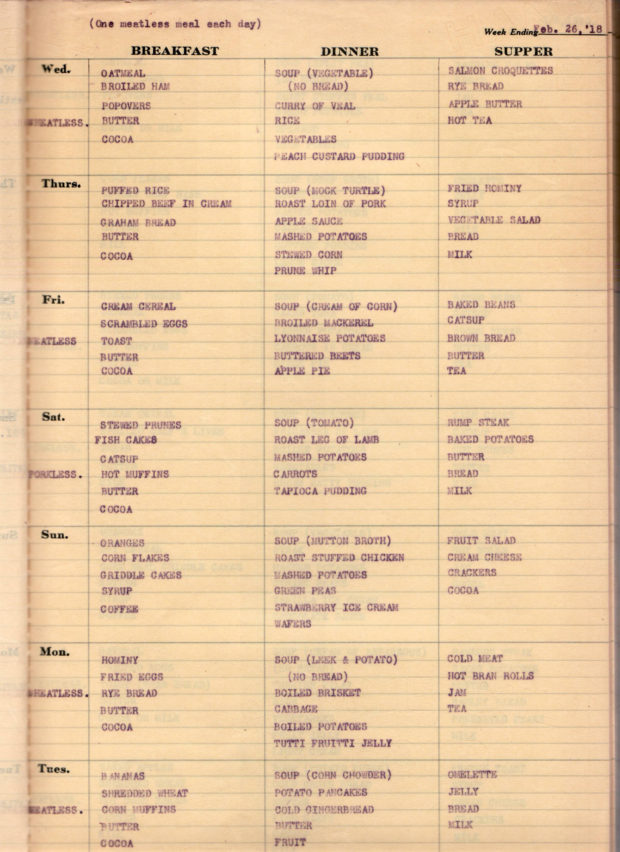 (One meatless meal each day)
Week Ending Feb. 26,'18
BREAKFAST DINNER SUPPER
Wed.
OATMEAL
BROILED HAM
POPOVERS
WHEATLESS. BUTTER
COCOA
SOUP (VEGETABLE)
(NO BREAD)
CURRY OF VEAL
RICE
VEGETABLES
PEACH CUSTARD PUDDING
SALMON CROQUETTES
RYE BREAD
APPLE BUTTER
HOT TEA
Thurs.
PUFFED RICE
CHIPPED BEEF IN CREAM
GRAHAM BREAD
BUTTER
COCOA
SOUP (MOCK TURTLE)
ROAST LOIN OF PORK
APPLE SAUCE
MASHED POTATOES
STEWED CORN
PRUNE WHIP
FRIED HOMINY
SYRUP
VEGETABLE SALAD
BREAD
MILK
Fri.
CREAM CEREAL
SCRAMBLED EGGS
MEATLESS TOAST
BUTTER
COCOA
SOUP (CREAM OF CORN)
BROILED MACKEREL
LYONNAISE POTATOES
BUTTERED BEETS
APPLE PIE
BAKED BEANS
CATSUP
BROWN BREAD
BUTTER
TEA
Sat.
STEWED PRUNES
FISH CAKES
CATSUP
PORKLESS. HOT MUFFINS
BUTTER
COCOA
SOUP (TOMATO)
ROAST LEG OF LAMB
MASHED POTATOES
CARROTS
TAPIOCA PUDDING
RUMP STEAK
BAKED POTATOES
BUTTER
BREAD
MILK
Sun.
ORANGES
CORN FLAKES
GRIDDLE CAKES
SYRUP
COFFEE
SOUP (MUTTON BROTH)
ROAST STUFFED CHICKEN
MASHED POTATOES
GREEN PEAS
STRAWBERRY ICE CREAM
WAFERS
FRUIT SALAD
CREAM CHEESE
CRACKERS
COCOA
Mon.
HOMINY
FRIED EGGS
WHEATLESS. RYE BREAD
BUTTER
COCOA
SOUP (LEEK & POTATO)
(NO BREAD)
BOILED BRISKET
CABBAGE
BOILED POTATOES
TUTTI FRUITTI JELLY
COLD MEAT
HOT BRAN ROLLS
JAM
TEA
Tues.
BANANAS
SHREDDED WHEAT
MEATLESS. CORN MUFFINS
BUTTER
COCOA
SOUP (CORN CHOWDER)
POTATO PANCAKES
COLD GINGERBREAD
BUTTER
FRUIT
OMELETTE
JELLY
BREAD
MILK